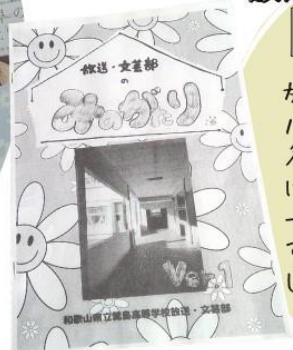 放送・文芸部
の
みのがたり
Ver.1
和歌山県立箕島高等学校放送・文芸部